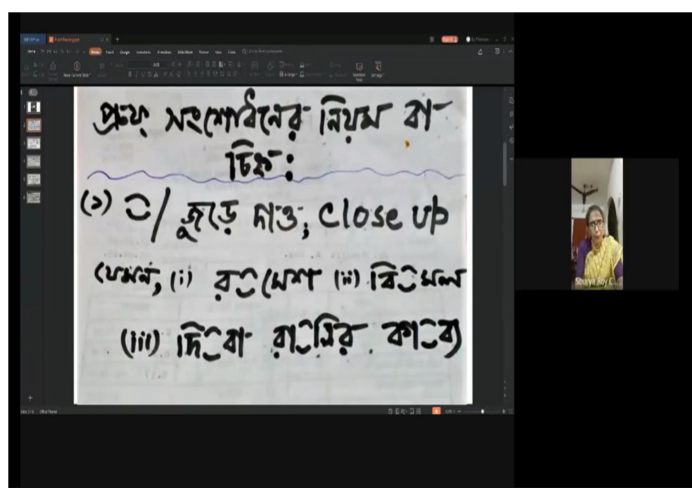 প্রুফ সংশোধনের নিয়ম বা
চিহ্ন:
(১) ⁐/ জুড়ে দাও, close up
যেমন, (i) র⁐মেশ (ii) বি⁐মল
(iii) দি⁐বা রা⁐ত্রির কা⁐ব্য